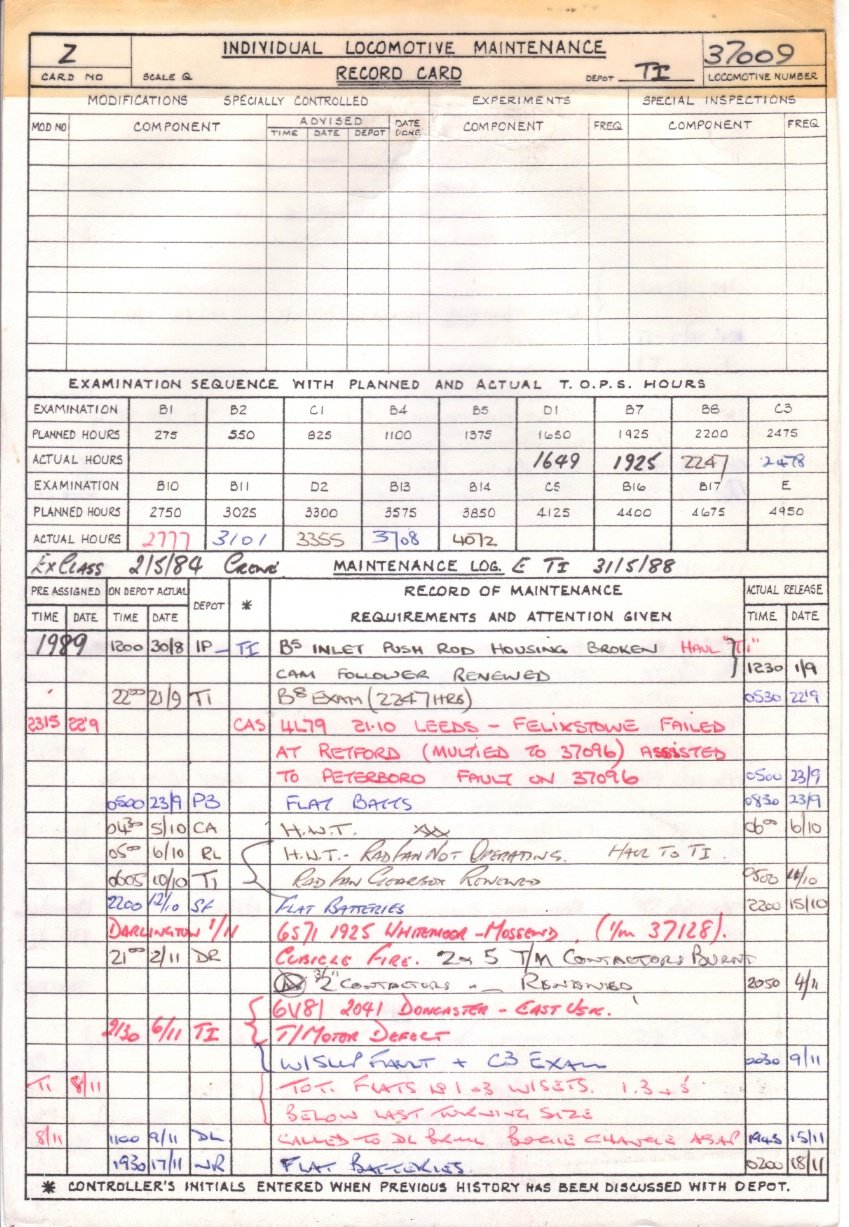 Z INDIVIDUAL LOCOMOTIVE MAINTENANCE 37009
CARD NO SCALE Q. RECORD CARD DEPOT TI LOCOMOTIVE NUMBER
MODIFICATIONS SPECIALLY CONTROLLED EXPERIMENTS SPECIAL INSPECTIONS
MOD NO COMPONENT ADVISED DATE DONE COMPONENT FREQ COMPONENT FREQ
TIME DATE DEPOT
EXAMINATION SEQUENCE WITH PLANNED AND ACTUAL T.O.P.S. HOURS
EXAMINATION B1 B2 C1 B4 B5 D1 B7 B8 C3
PLANNED HOURS 275 550 825 1100 1375 1650 1925 2200 2475
ACTUAL HOURS 1649 1925 2247 2478
EXAMINATION B10 B11 D2 B13 B14 C5 B16 B17 E
PLANNED HOURS 2750 3025 3300 3575 3850 4125 4400 4675 4950
ACTUAL HOURS 2777 3101 3355 3708 4072
Ex Class 2/5/84 Crewe MAINTENANCE LOG. E TI 31/5/88
PRE ASSIGNED ON DEPOT ACTUAL DEPOT * RECORD OF MAINTENANCE ACTUAL RELEASE
TIME DATE TIME DATE REQUIREMENTS AND ATTENTION GIVEN TIME DATE
1989 1200 30/8 IP - TI B5 INLET PUSH ROD HOUSING BROKEN HAUL "TI"
CAM FOLLOWER RENEWED 1230 1/9
2200 21/9 TI B8 EXAM (2247 HRS) 0530 22/9
2315 22/9 CAS 4L79 21.10 LEEDS - FELIXSTOWE FAILED
AT RETFORD (MULTIED TO 37096) ASSISTED
TO PETERBORO FAULT ON 37096 0500 23/9
0500 23/9 PB FLAT BATTS 0830 23/9
0430 5/10 CA H.N.T. XXX 0600 6/10
0500 6/10 RL H.N.T. - RAD FAN NOT OPERATING. HAUL TO TI.
0605 10/10 TI RAD FAN GEARBOX RENEWED 0500 11/10
2200 12/10 SF FLAT BATTERIES 2200 15/10
DARLINGTON 1/11 6S71 1925 WHITEMOOR - MOSSEND. (T/M 37128).
2100 2/11 DR CUBICLE FIRE. 2 & 5 T/M CONTACTORS BURNT
CONTACTORS RENEWED 2050 4/11
6V81 2041 DONCASTER - EAST USK.
2130 6/11 TI T/MOTOR DEFECT
W/SLIP FAULT + C3 EXAM 0030 9/11
TI 8/11 FLATS W/SETS.
BELOW LAST TURNING SIZE
8/11 1100 9/11 DL CALLED TO DL BOGIE CHANGE ASAP 1945 15/11
1930 17/11 WR FLAT BATTERIES. 0200 18/11
* CONTROLLER'S INITIALS ENTERED WHEN PREVIOUS HISTORY HAS BEEN DISCUSSED WITH DEPOT.